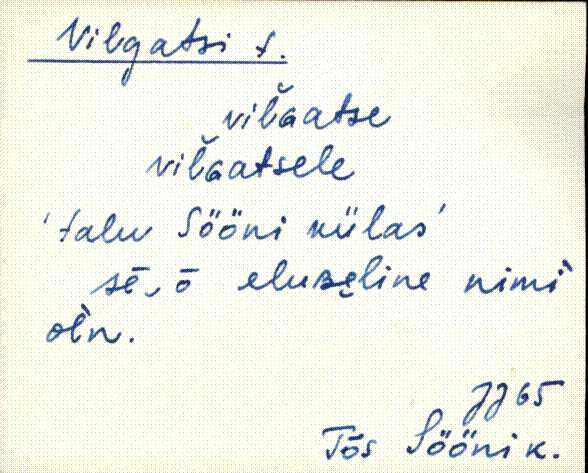 Vilgatsi t.
vil̆Gatse
vil̆Gatsele
'talu Sööni külas'
sē, ō eluzęline nimì
olǹ.
JJ 65
Tōs Sööni k.